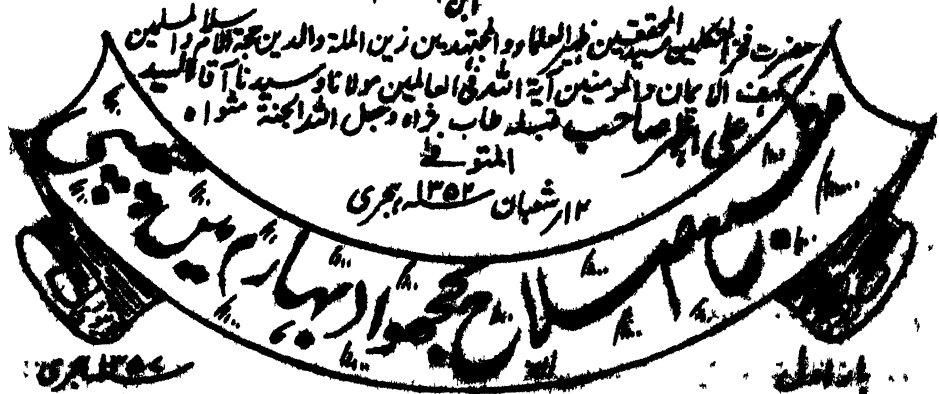 ابن
حضرت فخر المتکلمین سید المحققین ظہیر العلماء والمجتہدین زین الملۃ والدین حجۃ الاسلام والمسلمین
کہف الایمان والمومنین آیۃ اللہ فی العالمین مولانا وسیدنا آقا السید
علی اظہر صاحب قبلہ طاب ثراہ وجعل اللہ الجنۃ مثواہ
المتوفی
شعبان ۱۳۵۲ ہجری
اصلاح کھجوا بہار میں چھپی
ہجری